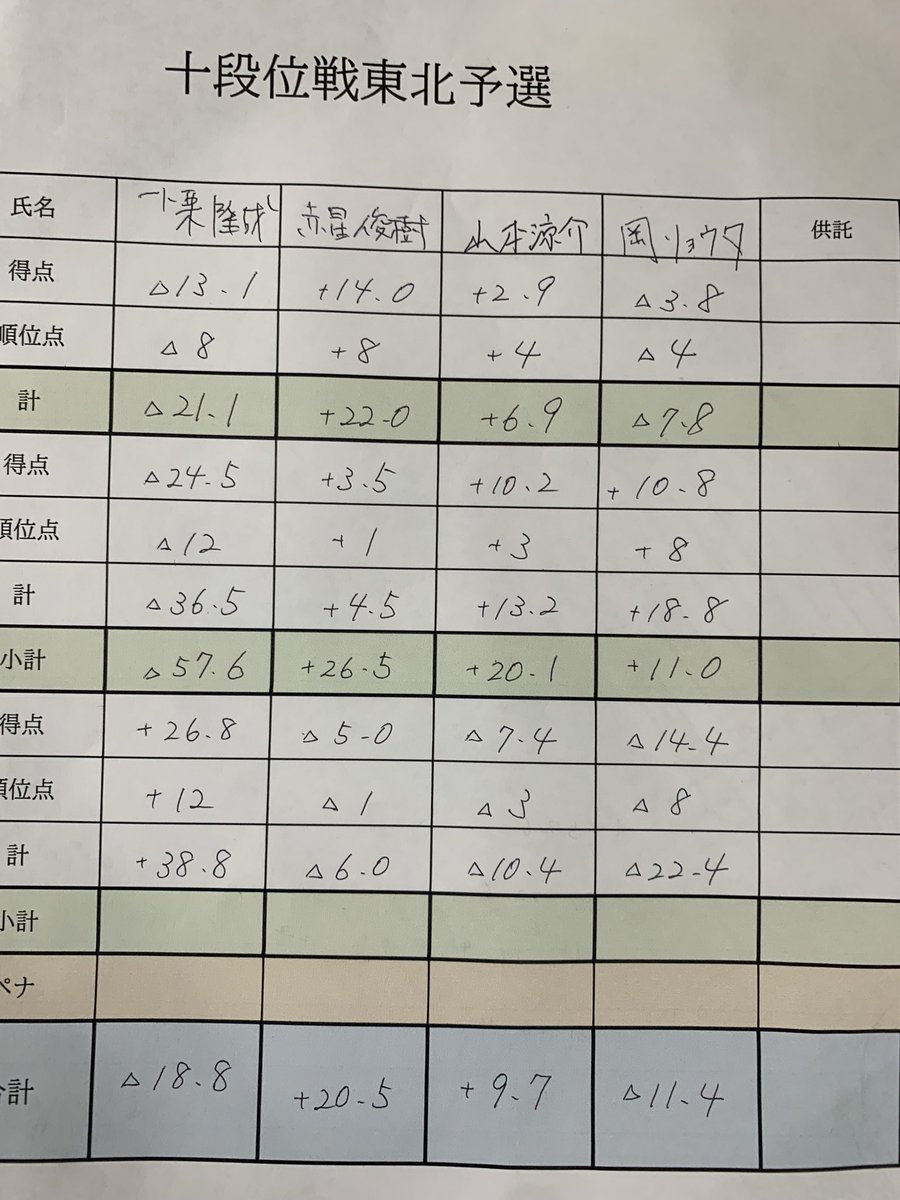 十段位戦東北予選
氏名 一栗隆誠 赤星俊樹 山本涼介 岡リョウタ 供託
得点 △13.1 +14.0 +2.9 △3.8
順位点 △8 +8 +4 △4
計 △21.1 +22.0 +6.9 △7.8
得点 △24.5 +3.5 +10.2 +10.8
順位点 △12 +1 +3 +8
計 △36.5 +4.5 +13.2 +18.8
小計 △57.6 +26.5 +20.1 +11.0
得点 +26.8 △5.0 △7.4 △14.4
順位点 +12 △1 △3 △8
計 +38.8 △6.0 △10.4 △22.4
小計
ペナ
合計 △18.8 +20.5 +9.7 △11.4